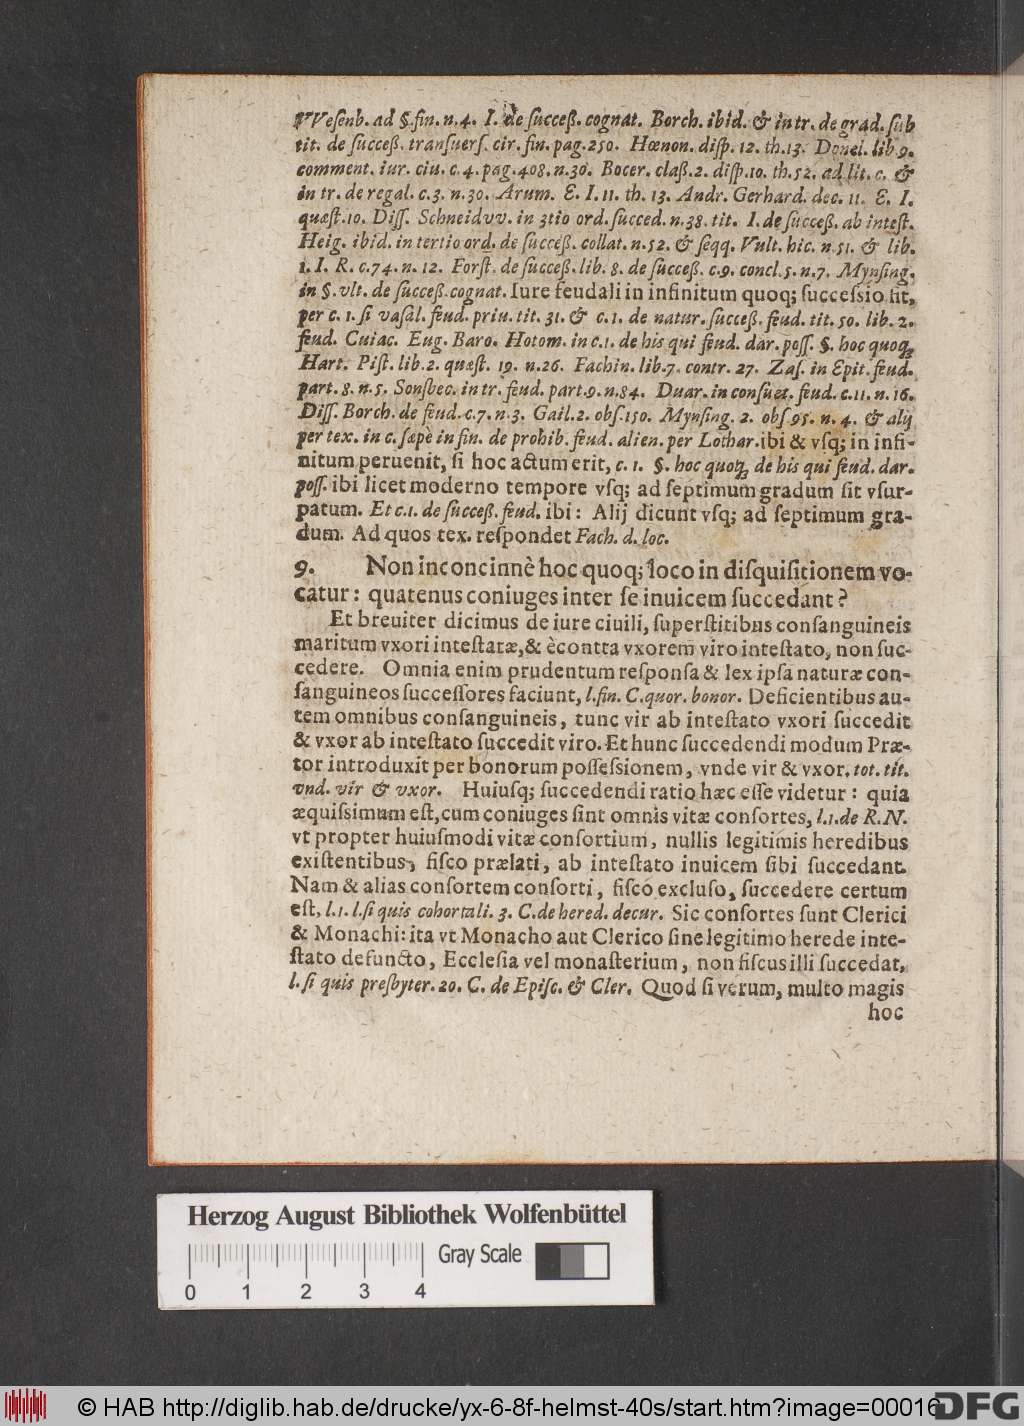 VVeſenb. ad §. fin. n. 4. I. de ſucceß. cognat. Borch. ibid. & in tr. de grad. ſub
tit. de ſucceß. tranſuerſ. cir. fin. pag. 250. Hœnon. diſp. 12. th. 13. Donel. lib 9.
comment. iur. ciu. c. 4. pag. 408. n. 30. Bocer. claß. 2. diſp. 10. th. 52. ad lit. c. &
in tr. de regal. c. 3. n. 30. Arum. E. I. 11. th. 13. Andr. Gerhard. dec. 11. E. I.
quæſt. 10. Diſſ. Schneiduv. in 3tio ord. ſucced. n. 38. tit. I. de ſucceß. ab inteſt.
Heig. ibid. in tertio ord. de ſucceß. collat. n. 52. & ſeqq. Vult. hic. n. 51. & lib.
1. I. R. c. 74. n. 12. Forſt. de ſucceß. lib. 8. de ſucceß. c. 9. concl. 5. n. 7. Mynſing.
in §. vlt. de ſucceß. cognat. Iure feudali in infinitum quoq; ſucceſsio fit,
per c. 1. ſi vaſal. feud. priu. tit. 31. & c. 1. de natur. ſucceß. feud. tit. 50. lib. 2.
feud. Cuiac. Eug. Baro. Hotom. in c. 1. de his qui feud. dar. poſſ. §. hoc quoq;
Hart. Piſt. lib. 2. quæſt. 19. n. 26. Fachin. lib. 7. contr. 27. Zaſ. in Epit. feud.
part. 8. n. 5. Sonſbec. in tr. feud. part. 9. n. 84. Duar. in conſuet. feud. c. 11. n. 16.
Diſſ. Borch. de feud. c. 7. n. 3. Gail. 2. obſ. 150. Mynſing. 2. obſ 95. n. 4. & alij
per tex. in c. ſæpè in fin. de prohib. feud. alien. per Lothar. ibi & vſq; in infi-
nitum peruenit, ſi hoc actum erit, c. 1. §. hoc quoq; de his qui feud. dar.
poſſ. ibi licet moderno tempore vſq; ad ſeptimum gradum ſit vſur-
patum. Et c. 1. de ſucceß. feud. ibi: Alij dicunt vſq; ad ſeptimum gra-
dum. Ad quos tex. reſpondet Fach. d. loc.
9. Non inconcinnè hoc quoq; loco in diſquiſitionem vo-
catur: quatenus coniuges inter ſe inuicem ſuccedant?
Et breuiter dicimus de iure ciuili, ſuperſtitibus conſanguineis
maritum vxori inteſtatæ, & ècontra vxorem viro inteſtato, non ſuc-
cedere. Omnia enim prudentum reſponſa & lex ipſa naturæ con-
ſanguineos ſucceſſores faciunt, l. fin. C. quor. bonor. Deficientibus au-
tem omnibus conſanguineis, tunc vir ab inteſtato vxori ſuccedit
& vxor ab inteſtato ſuccedit viro. Et hunc ſuccedendi modum Præ-
tor introduxit per bonorum poſſeſsionem, vnde vir & vxor. tot. tit.
vnd. vir & vxor. Huiuſq; ſuccedendi ratio hæc eſſe videtur: quia
æquiſsimum eſt, cum coniuges ſint omnis vitæ conſortes, l. 1. de R. N.
vt propter huiuſmodi vitæ conſortium, nullis legitimis heredibus
exiſtentibus, fiſco prælati, ab inteſtato inuicem ſibi ſuccedant.
Nam & alias conſortem conſorti, fiſco excluſo, ſuccedere certum
eſt, l. 1. l. ſi quis cohortali. 3. C. de hered. decur. Sic conſortes ſunt Clerici
& Monachi: ita vt Monacho aut Clerico ſine legitimo herede inte-
ſtato defuncto, Eccleſia vel monaſterium, non fiſcus illi ſuccedat,
l. ſi quis preſbyter. 20. C. de Epiſc. & Cler. Quod ſi verum, multo magis
hoc
Herzog August Bibliothek Wolfenbüttel
Gray Scale
0 1 2 3 4
© HAB http://diglib.hab.de/drucke/yx-6-8f-helmst-40s/start.htm?image=00016
DFG